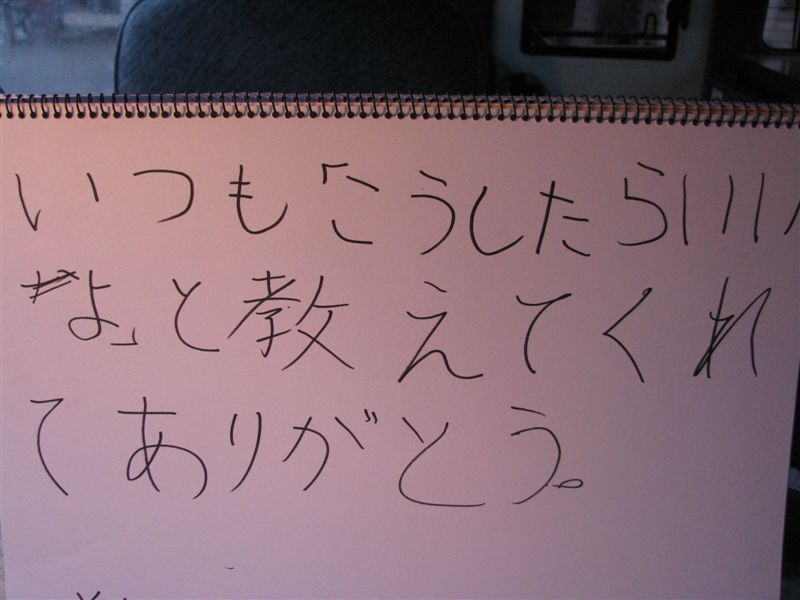 いつも「こうしたらいい
よ」と教えてくれ
てありがとう。